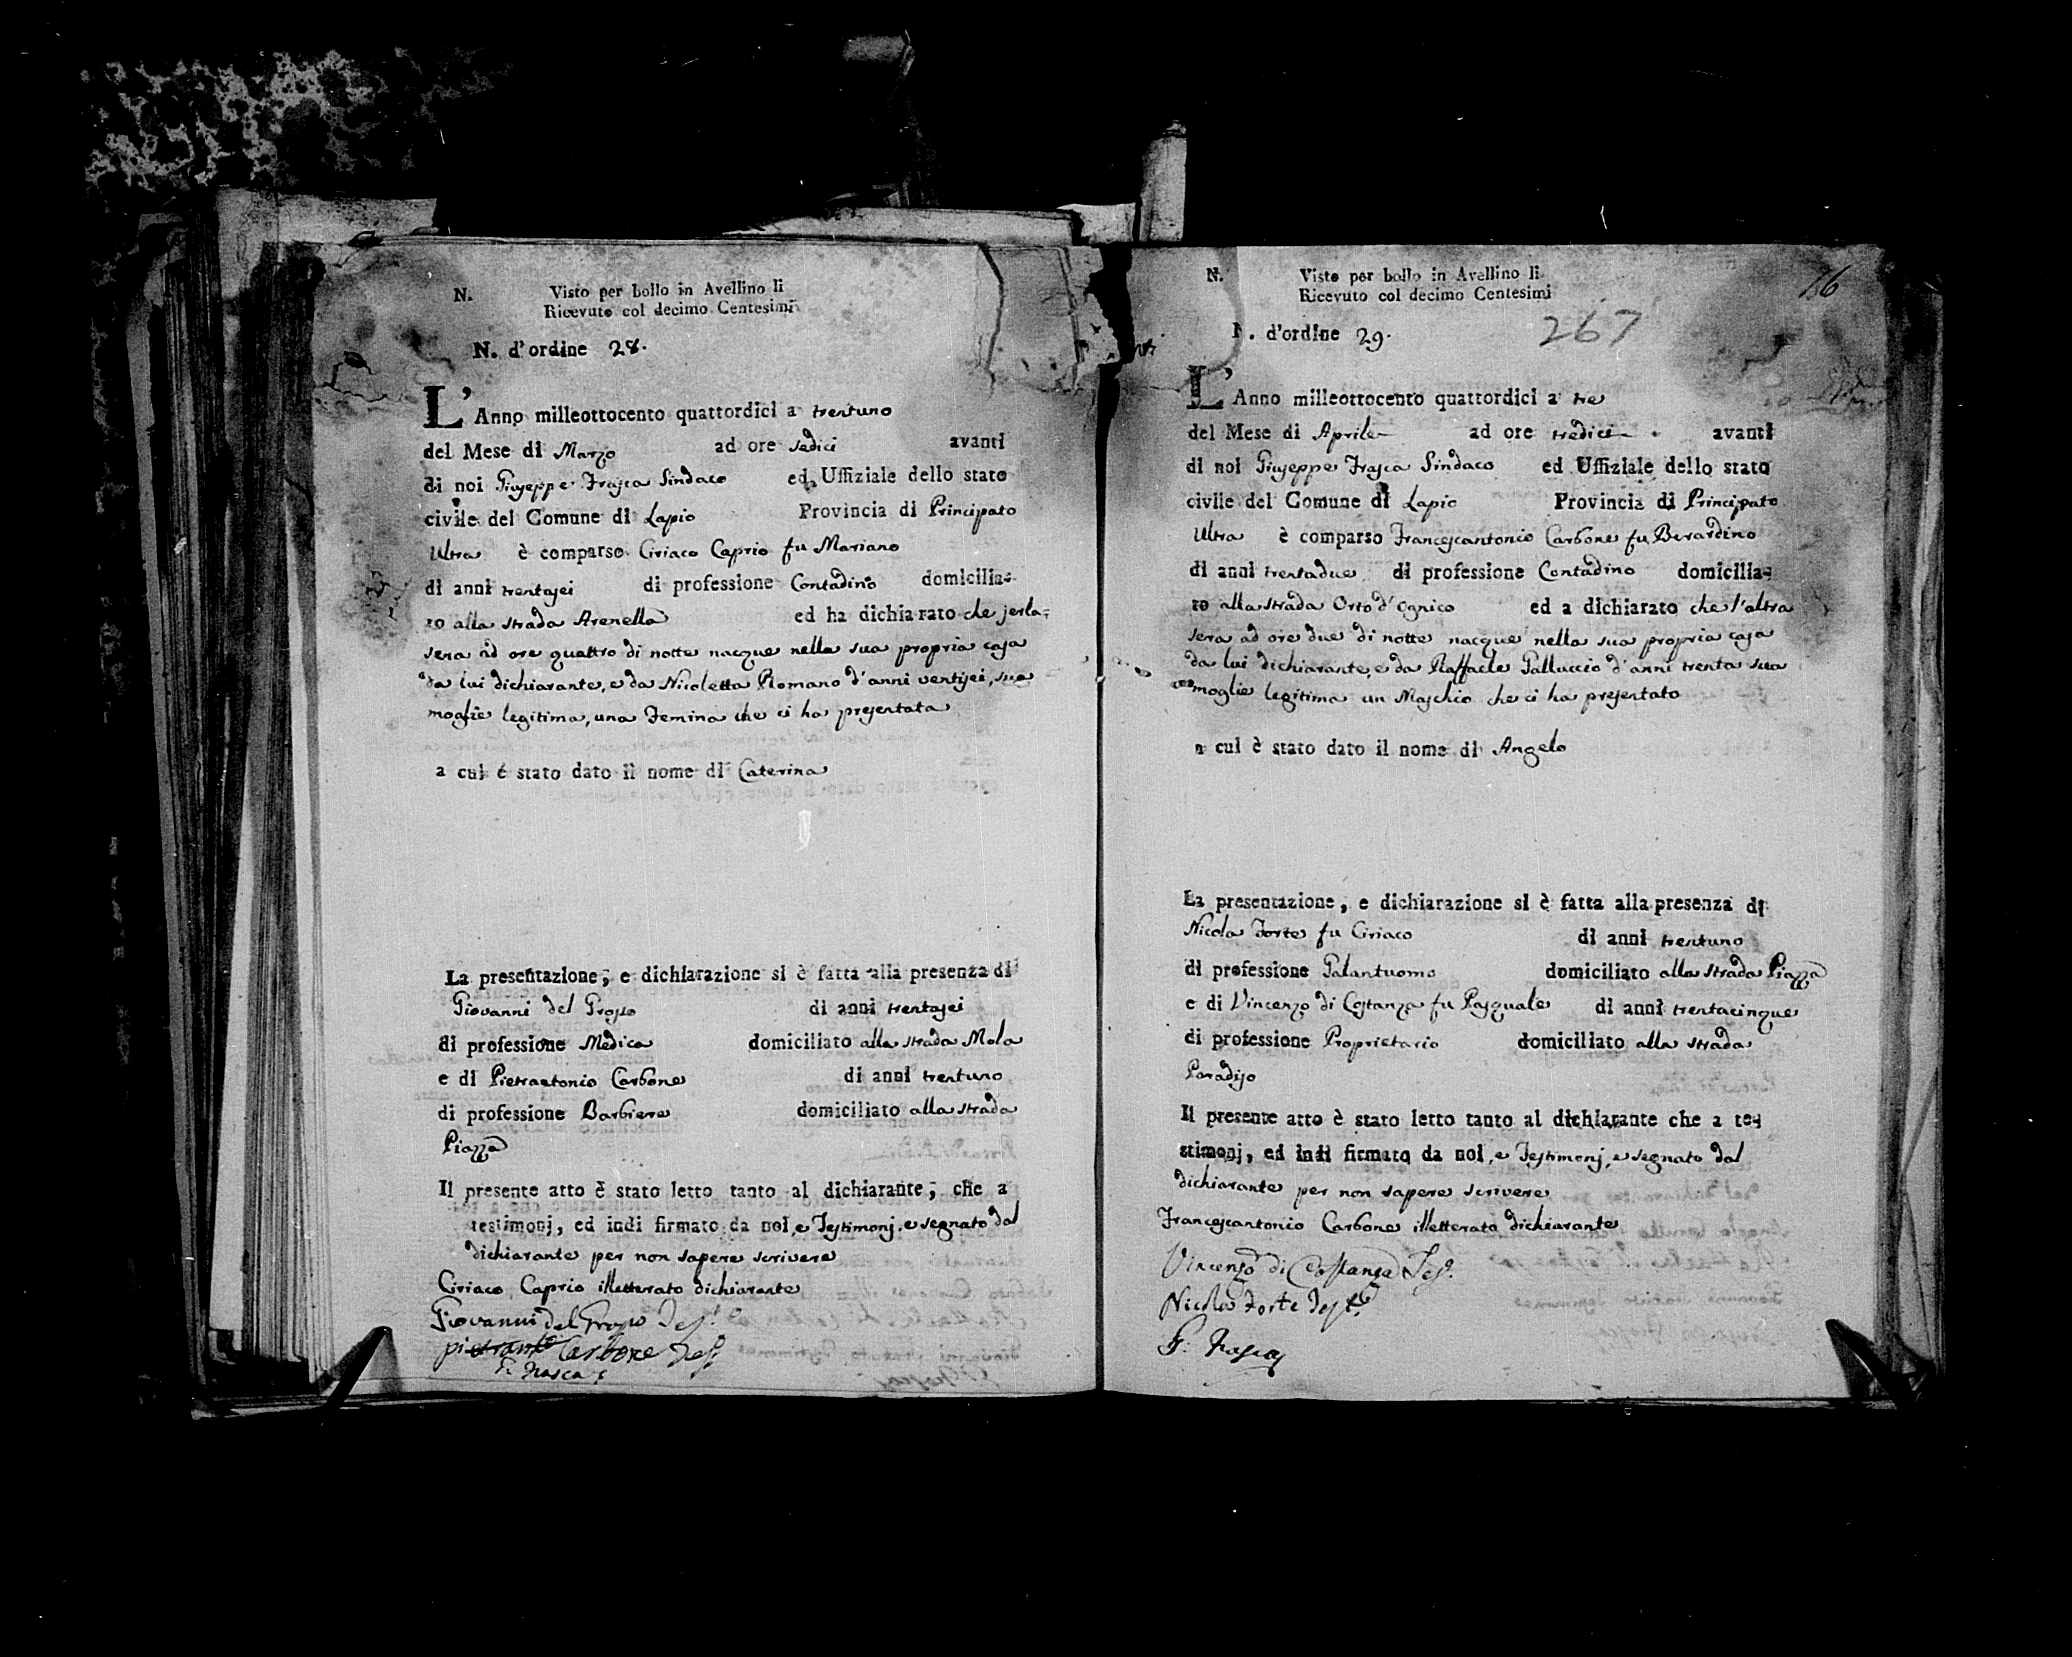 N. Visto per bollo in Avellino li
Ricevuto col decimo Centesimi
N. d'ordine 28.
L'Anno milleottocento quattordici a trentuno
del Mese di Marzo ad ore sedici avanti
di noi Giuseppe Frasca Sindaco ed Uffiziale dello stato
civile del Comune di Lapio Provincia di Principato
Ultra è comparso Ciriaco Caprio fu Mariano
di anni trentasei di professione Contadino domicilia=
to alla strada Arenella ed ha dichiarato che jerla=
sera ad ore quattro di notte nacque nella sua propria casa
da lui dichiarante, e da Nicoletta Romano d'anni ventisei, sua
moglie legitima, una Femina che ci ha presentata
a cui é stato dato il nome di Caterina
La presentazione, e dichiarazione si è fatta alla presenza di
Giovanni del Grosso di anni trentasei
di professione Medico domiciliato alla strada Mola
e di Pietrantonio Carbone di anni trentuno
di professione Barbiere domiciliato alla strada
Piazza
Il presente atto è stato letto tanto al dichiarante, che a
testimonj, ed indi firmato da noi, e Testimonj, e segnato dal
dichiarante per non sapere scrivere
Ciriaco Caprio illetterato dichiarante
Giovanni del Grosso Tes.
pietrant Carbone Tes.
G. Frasca
N. Visto per bollo in Avellino li
Ricevuto col decimo Centesimi
N. d'ordine 29.
267
L'Anno milleottocento quattordici a tre
del Mese di Aprile ad ore tredici avanti
di noi Giuseppe Frasca Sindaco ed Uffiziale dello stato
civile del Comune di Lapio Provincia di Principato
Ultra è comparso Francescantonio Carbone fu Berardino
di anni trentadue di professione Contadino domicilia=
to alla strada Orto d'Ognico ed a dichiarato che l'altra
sera ad ore due di notte nacque nella sua propria casa
da lui dichiarante, e da Raffaele Galluccio d'anni trenta sua
moglie legitima un Maschio che ci ha presentato
a cui è stato dato il nome di Angelo
La presentazione, e dichiarazione si è fatta alla presenza di
Nicola Forte fu Ciriaco di anni trentuno
di professione Galantuomo domiciliato alla strada Piazza
e di Vincenzo di Costanza fu Pasquale di anni trentacinque
di professione Proprietario domiciliato alla strada
Paradiso
Il presente atto è stato letto tanto al dichiarante che a te=
stimonj, ed indi firmato da noi, e Testimonj, e segnato dal
dichiarante per non sapere scrivere
Francescantonio Carbone illetterato dichiarante
Vincenzo di Costanza Tes.
Nicola Forte Test.
G. Frasca